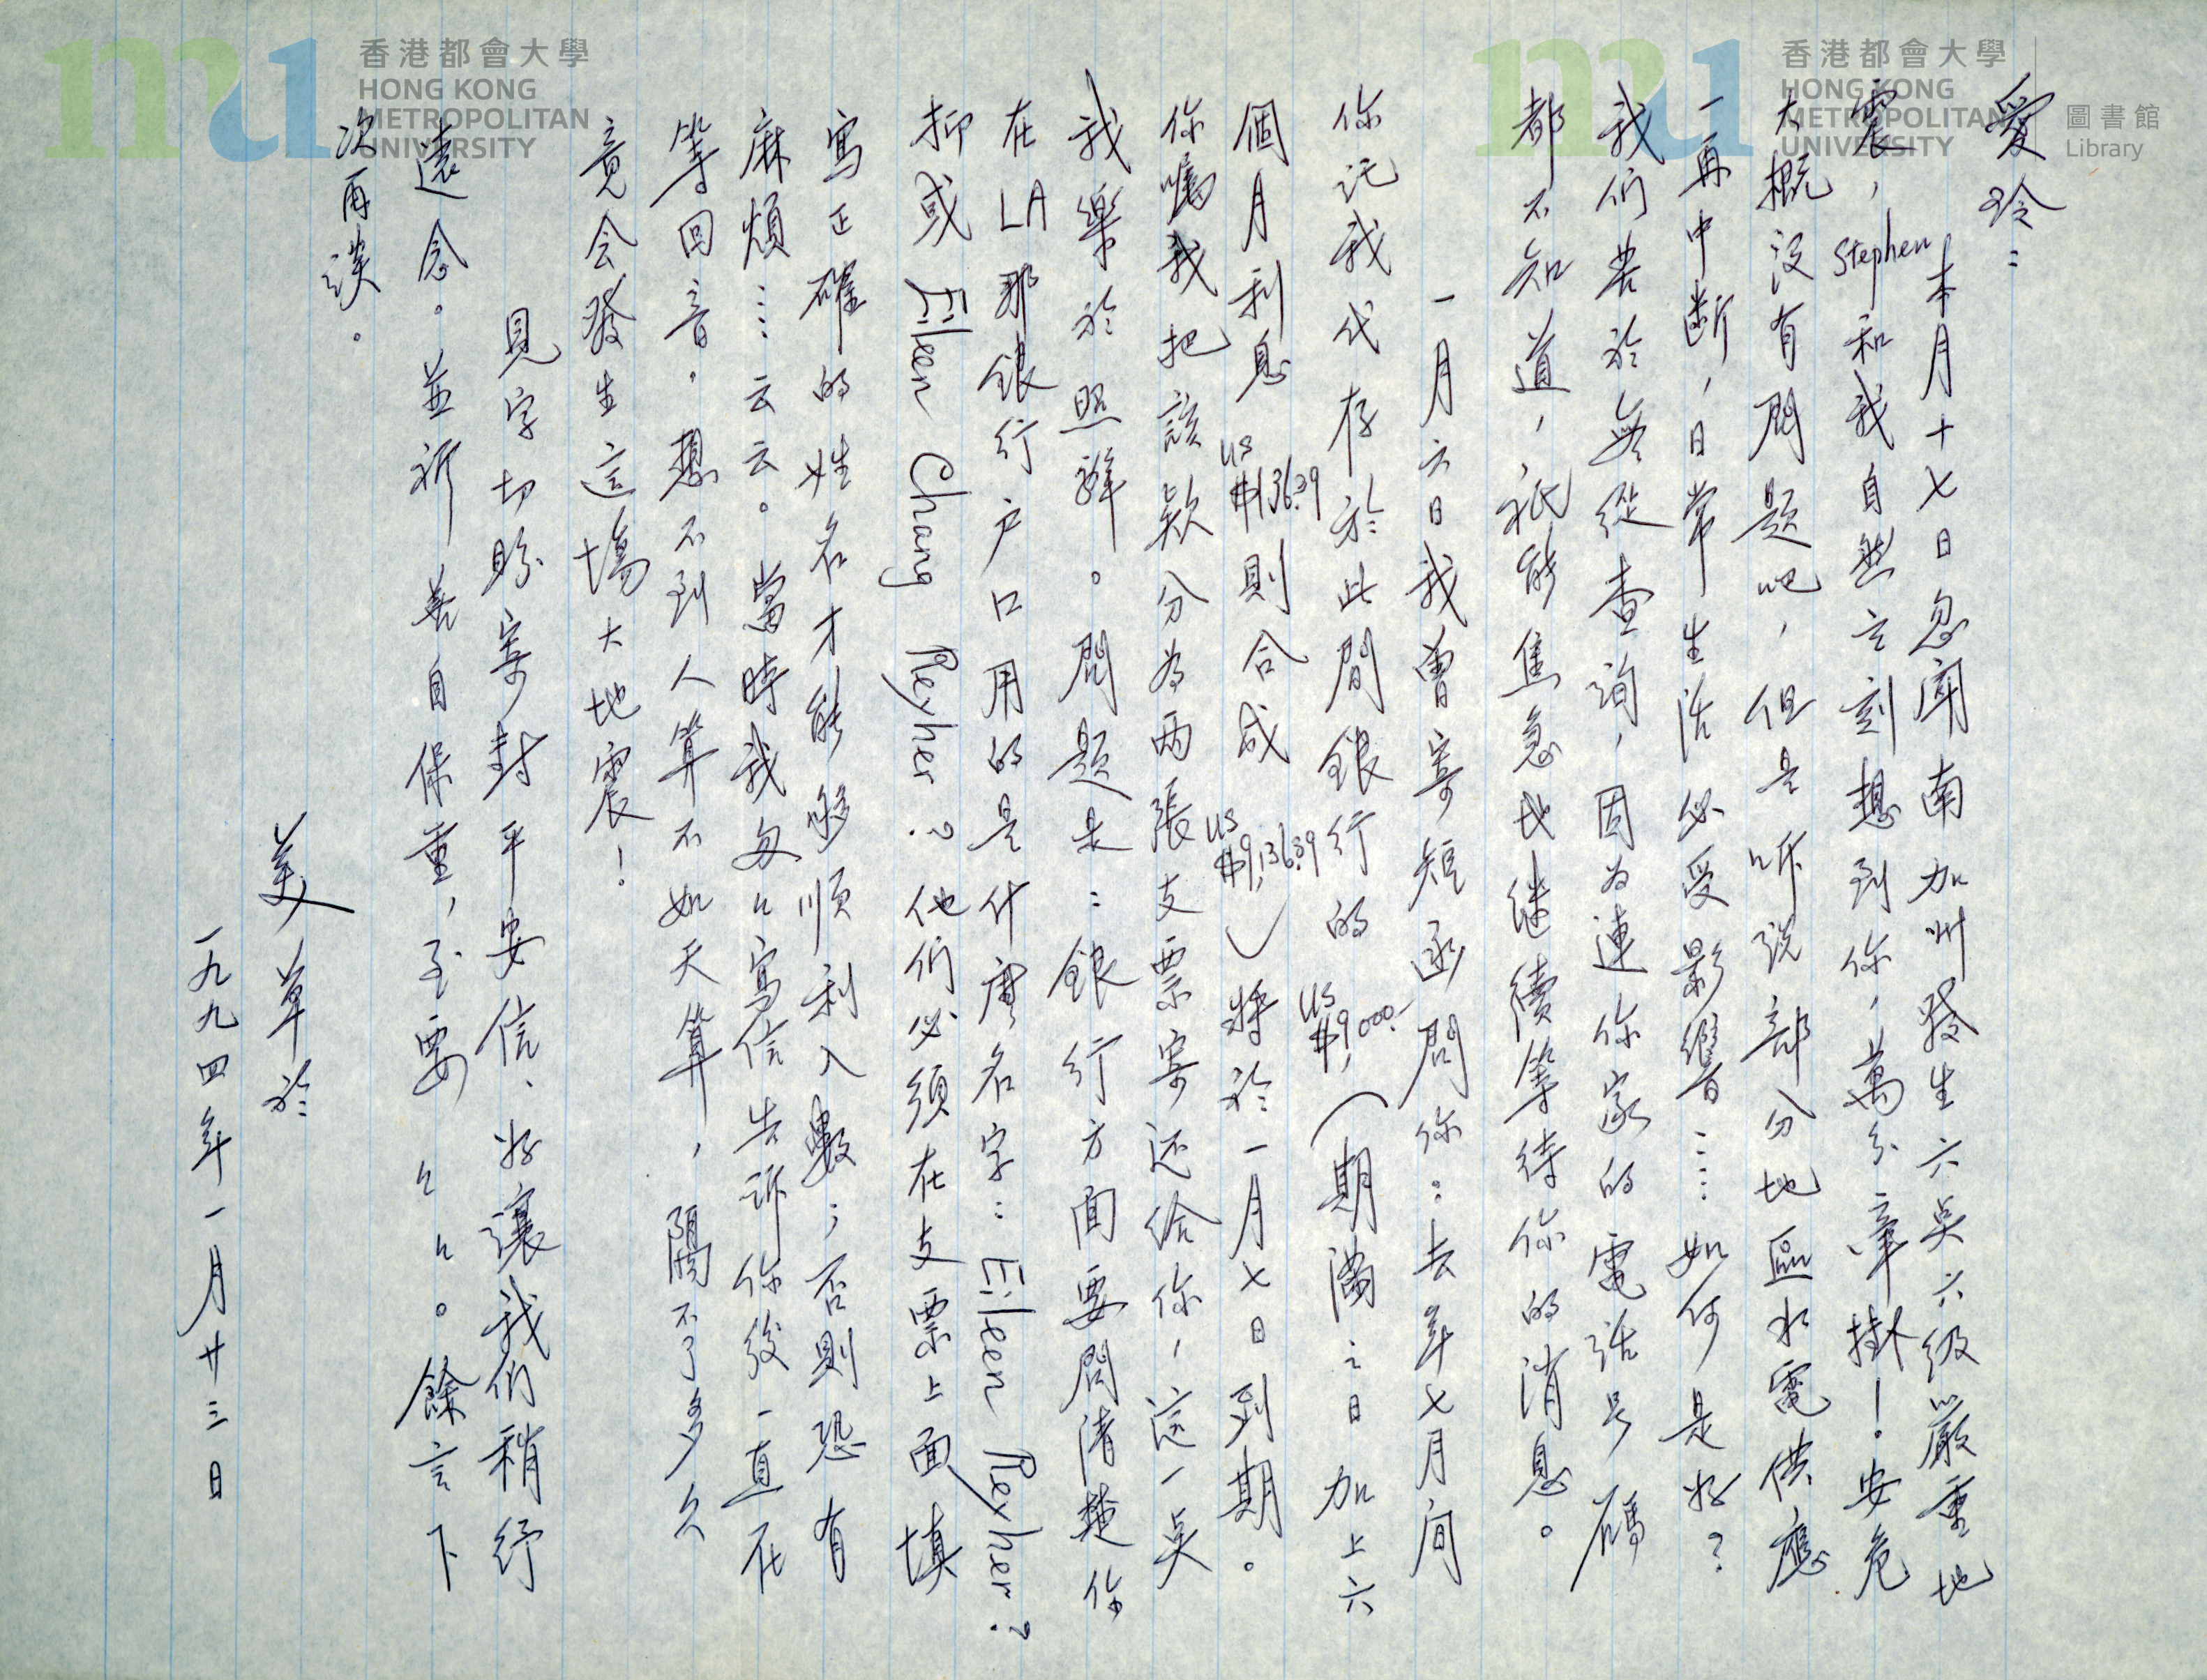 愛玲：
本月十七日忽聞南加州發生六點六級嚴重地
震，Stephen和我自然立刻想到你，萬分牽掛！安危
大概沒有問題吧，但是听說部分地區水電供應
一再中断，日常生活必受影響……如何是好？
我们苦於無從查詢，因为連你家的電話号碼
都不知道，祇能焦急地継續等待你的消息。
一月六日我曾寄短函問你：去年七月间
你託我代存於此間銀行的US$9,000.-（期滿之日加上六
個月利息US$136.39則合成US$9,136.39）將於一月七日到期。
你囑我把該款分为两張支票寄还給你，這一點
我樂於照辦。問題是：銀行方面要問清楚你
在LA那銀行户口用的是什麽名字：Eileen Reyher？
抑或Eileen Chang Reyher？他们必須在支票上面填
寫正確的姓名才能够順利入數；否則恐有
麻煩……云云。當時我匆匆寫信告訴你後一直在
等回音。想不到人算不如天算，隔不了多久
竟会發生這場大地震！
見字切盼寄封平安信、好讓我们稍紓
遠念。並祈善自保重，至要々々。餘言下
次再談。
美草於
一九九四年一月廿三日
香港都會大學
HONG KONG
METROPOLITAN
UNIVERSITY
香港都會大學
HONG KONG
METROPOLITAN
UNIVERSITY
圖書館
Library